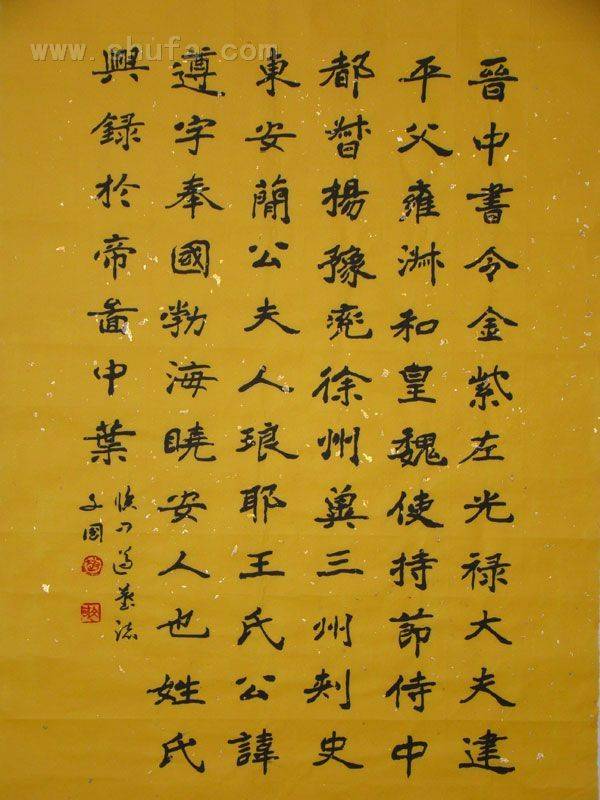 晉中書令金紫左光禄大夫建
平父雍淑和皇魏使持節侍中
都督揚豫兗徐州冀三州刺史
東安簡公夫人琅耶王氏公諱
遵字奉國勃海曉安人也姓氏
興録於帝啚中葉
刁遵墓誌
文國